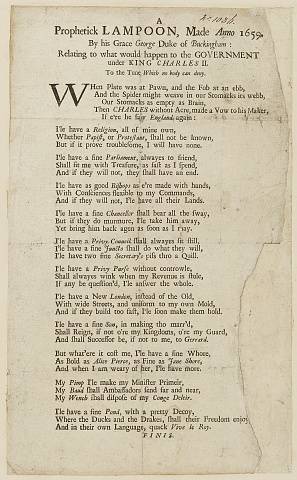 A
Prophetick LAMPOON, Made Anno 1659.
By his Grace George Duke of Buckingham:
Relating to what would happen to the GOVERNMENT
under KING CHARLES II.
To the Tune Which no body can deny.
WHen Plate was at Pawn, and the Fob at an ebb,
And the Spider might weave in our Stomacks its webb,
Our Stomacks as empty as Brain,
Then CHARLES without Acre, made a Vow to his Maker,
If e're he saw England again:
I'le have a Religion, all of mine own,
Whether Papist, or Protestant, shall not be known,
But if it prove troublesome, I will have none.
I'le have a fine Parliament, alwayes to friend,
Shall fit me with Treasure, as fast as I spend,
And if they will not, they shall have an end.
I'le have as good Bishops as e're made with hands,
With Consciences flexible to my Commands,
And if they will not, I'le have all their Lands.
I'le have a fine Chancellor shall bear all the sway,
But if they do murmure, I'le take him away,
Yet bring him back agen as soon as I may.
I'le have a Privy Council shall alwayes sit still,
I'le have a fine Juncto shall do what they will,
I'le have two fine Secretary's piss thro a Quill.
I'le have a Privy Purse without controwle,
Shall alwayes wink when my Revenue is stole,
If any be question'd, I'le answer the whole.
I'le have a New London, instead of the Old,
With wide Streets, and uniform to my own Mold,
And if they build too fast, I'le soon make them hold.
I'le have a fine Son, in making tho marr'd,
Shall Reign, if not o're my Kingdoms, o're my Guard,
And shall Successor be, if not to me, to Gerrard.
But what e're it cost me, I'le have a fine Whore,
As Bold as Alice Pierce, as Fine as Jane Shore,
And when I am weary of her, I'le have more.
My Pimp I'le make my Minister Primeir,
My Baud shall Ambassadors send far and near,
My Wench shall dispose of my Conge Delier.
I'le have a fine Pond, with a pretty Decoy,
Where the Ducks and the Drakes, shall their Freedom enjoy
And in their own Language, quack Vive le Roy.
FINIS.